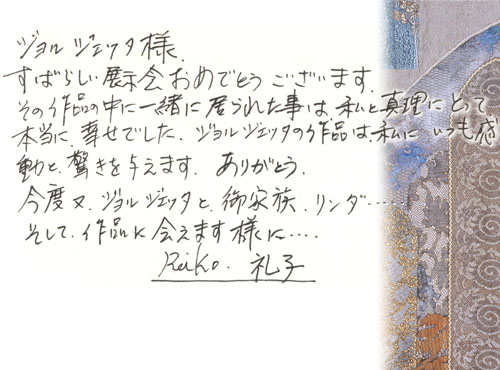 ジョルジェッタ様.
すばらしい展示会おめでとうございます.
その作品の中に一緒に居られた事は、私と真理にとって
本当に幸せでした. ジョルジェッタの作品は、私にいつも感
動と驚きを与えます. ありがとう.
今度又、ジョルジェッタと御家族、リンダ……
そして、作品に会えます様に….
Reiko. 礼子